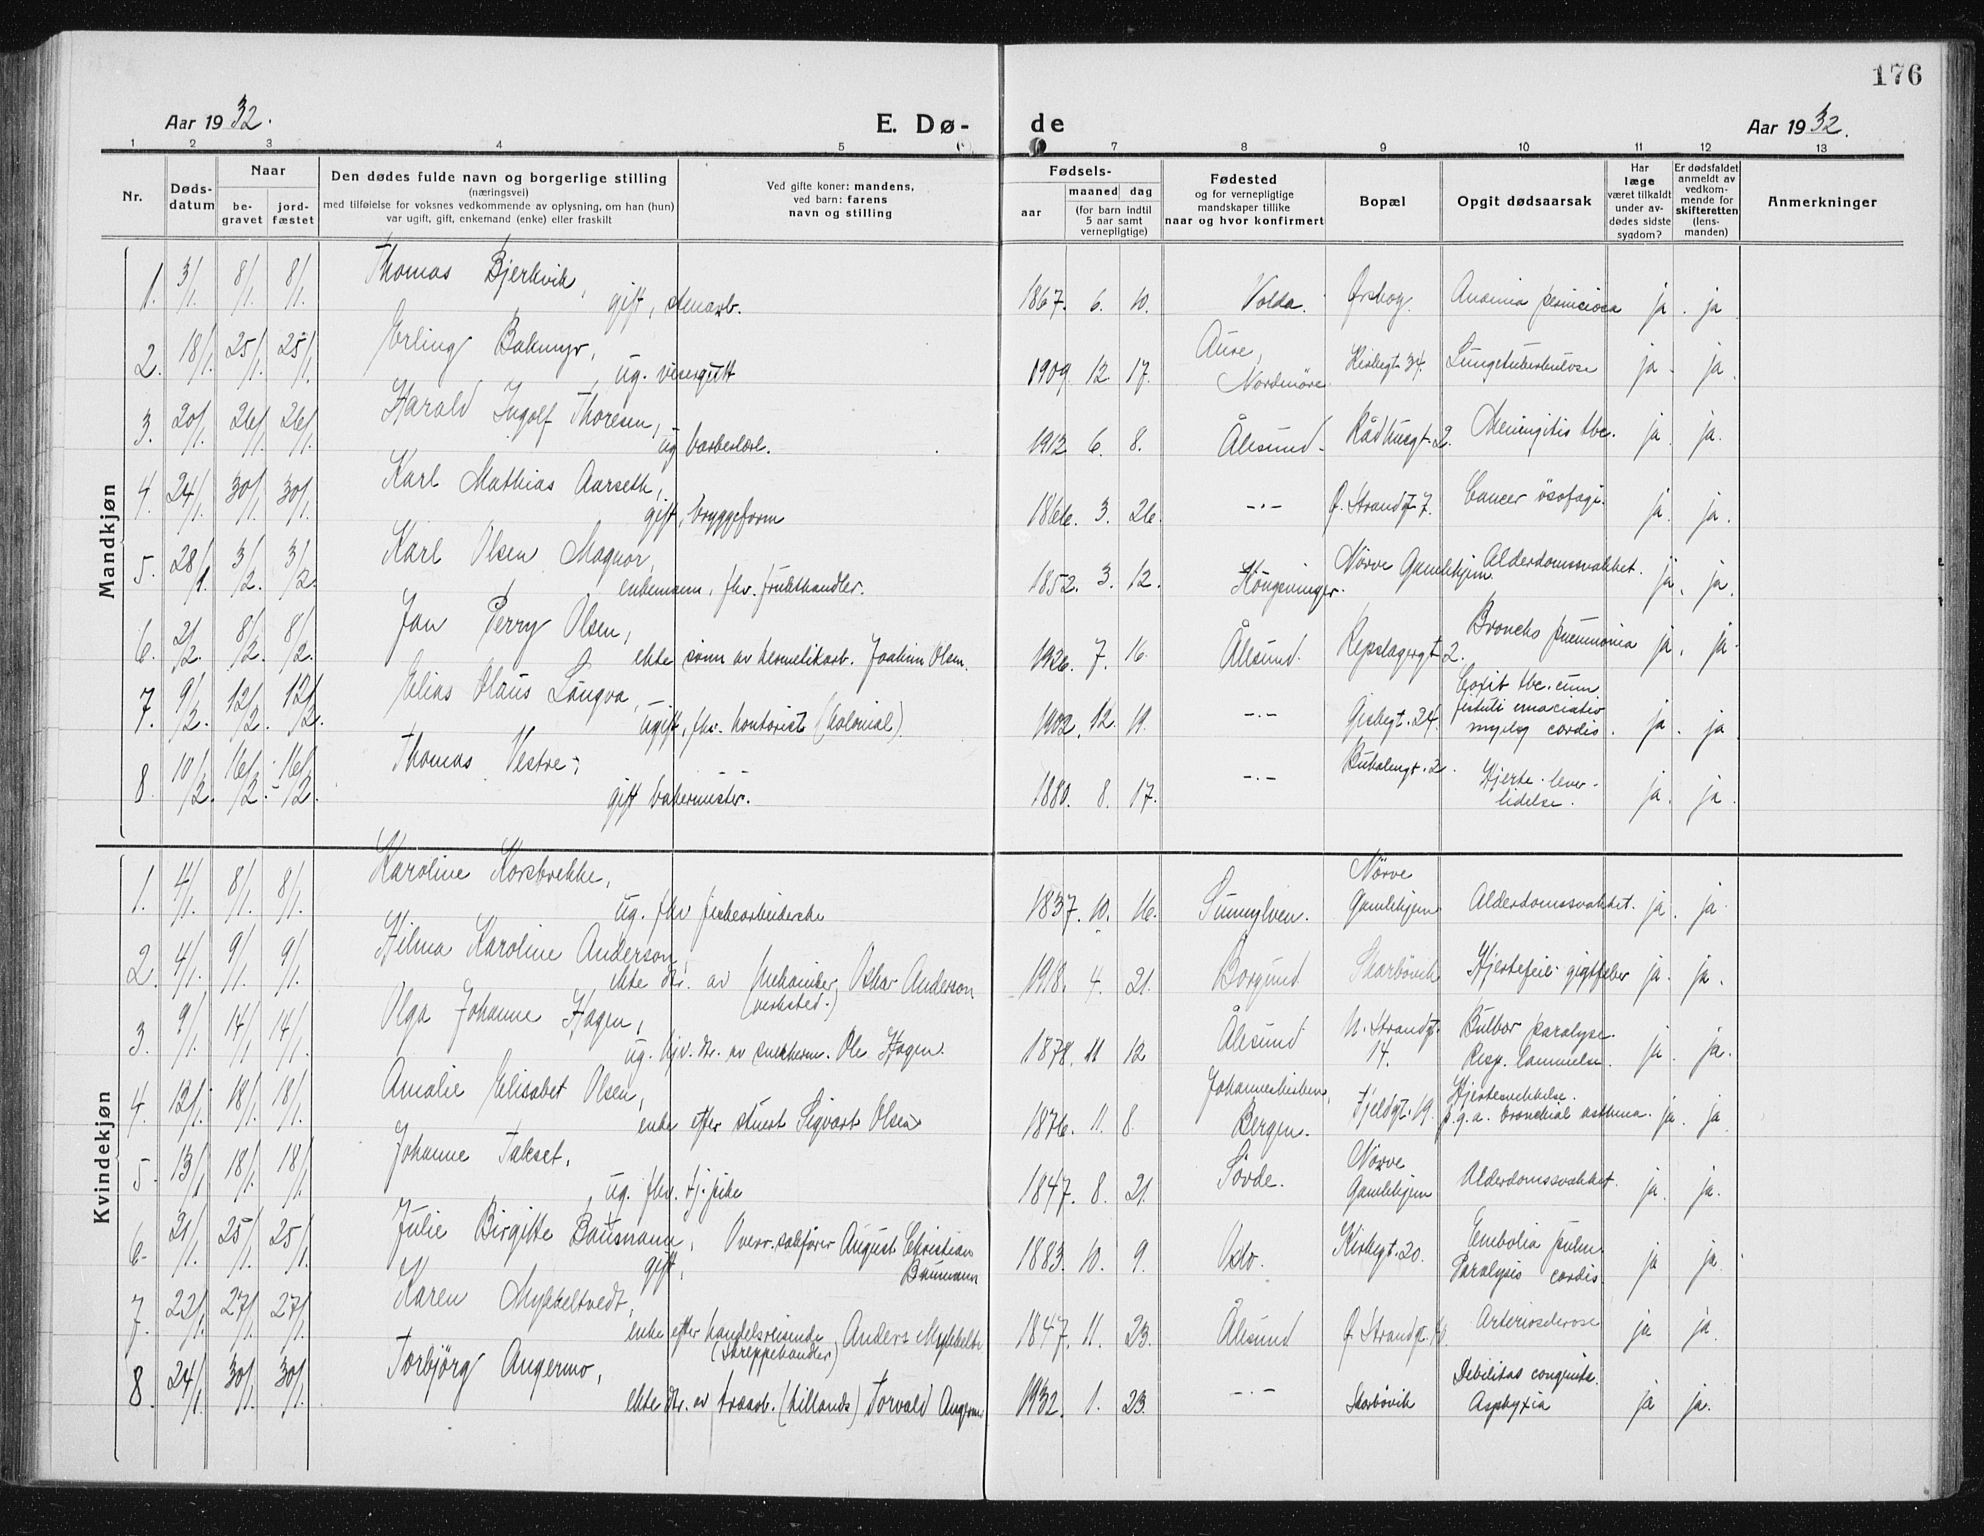 176
Aar 1932. E. Dø- de Aar 1932.
1 2 3 4 5 7 8 9 10 11 12 13
Nr.
Døds-
datum
Naar
be-
gravet
jord-
fæstet
Den dødes fulde navn og borgerlige stilling
(næringsvei)
med tilføielse for voksnes vedkommende av oplysning, om han (hun)
var ugift, gift, enkemand (enke) eller fraskilt
Ved gifte koner: mandens,
ved barn: farens
navn og stilling
Fødsels-
aar
maaned dag
(for barn indtil
5 aar samt
vernepligtige)
Fødested
og for vernepligtige
mandskaper tillike
naar og hvor konfirmert
Bopæl
Opgit dødsaarsak
Har
læge
været tilkaldt
under av-
dødes sidste
sygdom?
Er dødsfaldet
anmeldt av
vedkom-
mende for
skifteretten
(lens-
manden)
Anmerkninger
Mandkjøn
1. 3/1. 8/1. 8/1. Thomas Bjerkvik,
gift, stenarb. 1867. 6. 10. Volda. Ørskog. Anæmia perniciosa ja. ja
2. 18/1. 25/1. 25/1. Erling Bakmyr,
ug. visergutt 1909 12 17. Aure,
Nordmöre. Kirkegt. 34. Lungetuberkulose ja. ja.
3. 20/1. 26/1. 26/1. Harald Ingolf Thoresen,
ug barberlærl. 1912 6. 8. Ålesund. Rådhusgt. 2. Meningitis tbc. ja. ja.
4. 24/1. 30/1. 30/1. Karl Mathias Aarseth,
gift, bryggeform 1866. 3. 26. -"- Ø. Strandgt 7. Cancer ösofagi. ja. ja.
5. 28/1. 3/2. 3/2. Karl Olsen Magnor,
enkemann, fhv. frukthandler. 1852. 3. 12. Kongsvinger. Nörve Gamlehjem Alderdomssvakhet. ja. ja.
6. 2/2. 8/2. 8/2. Jan Perry Olsen,
ekte sönn av hermetikarb. Joakim Olsen. 1926. 7. 16. Ålesund. Repslagergt 2. Broncho pneumonia ja. ja.
7. 9/2. 12/2. 12/2. Elias Olaus Långva,
ugift, fhv. kontorist (kolonial). 1902. 12. 19. -"- Girkegt. 24. Coxit tbc. cum.
fistuli emaciatio
cordis. ja. ja
8. 10/2. 16/2. 16/2. Thomas Vestre,
gift bakermister. 1880. 8. 17. -"- Bukolengt. 2. Hjerte-lever-
lidelse. ja. ja.
Kvindekjøn
1. 4/1. 8/1. 8/1. Karoline Korsbrekke,
ug. fhv fiskearbeiderske 1837. 10. 16. Sunnylven. Nörve
Gamlehjem Alderdomssvakhet. ja. ja
2. 4/1. 9/1. 9/1. Hilma Karoline Anderson,
ekte dtr. av mekaniker Oskar Anderson
(verksted.) 1918. 4. 21. Borgund Skarbövik Hjertefeil gigtfeber ja. ja.
3. 9/1. 14/1. 14/1. Olga Johanne Hagen,
ug. hjv. dtr. av snekkerm. Ole Hagen. 1878. 11 12 Ålesund N. Strandgt.
14. Bulbær paralyse.
Resp. lammelse. ja. ja.
4. 12/1. 18/1. 18/1. Amalie Elisabet Olsen,
enke efter stuert Sigvart Olsen 1876. 11. 8. Johanneskirken,
Bergen. Fjeldgt. 19. Hjertesvekkelse.
p.g.a. bronchial asthma. ja. ja
5. 13/1 18/1. 18/1. Johanne Takset,
ug. fhv. tj. pike 1847. 8. 21. Sövde. Nörve
Gamlehjem Alderdomssvakhet. ja. ja.
6. 21/1. 25/1. 25/1. Julie Birgitte Bausmann,
gift, Overr.sakförer August Christian
Baumann 1883. 10. 9. Oslo. Kirkegt. 20. Embolia pulm.
Paralysis cordis. ja ja
7. 22/1. 27/1. 27/1. Karen Mykkeltvedt,
enke efter handelsreisende Anders Mykkeltv
(Skreppehandler) 1847. 11. 23. Ålesund Ø. Strandgt. 10 Arteriosclerose ja ja.
8. 24/1 30/1. 30/1. Torbjörg Angermo,
ekte dtr. av traarb. (tillands) Torvald Angermo 1932. 1. 23. -"- Skarbövik Debilitas congenita.
Asphyxia ja ja.